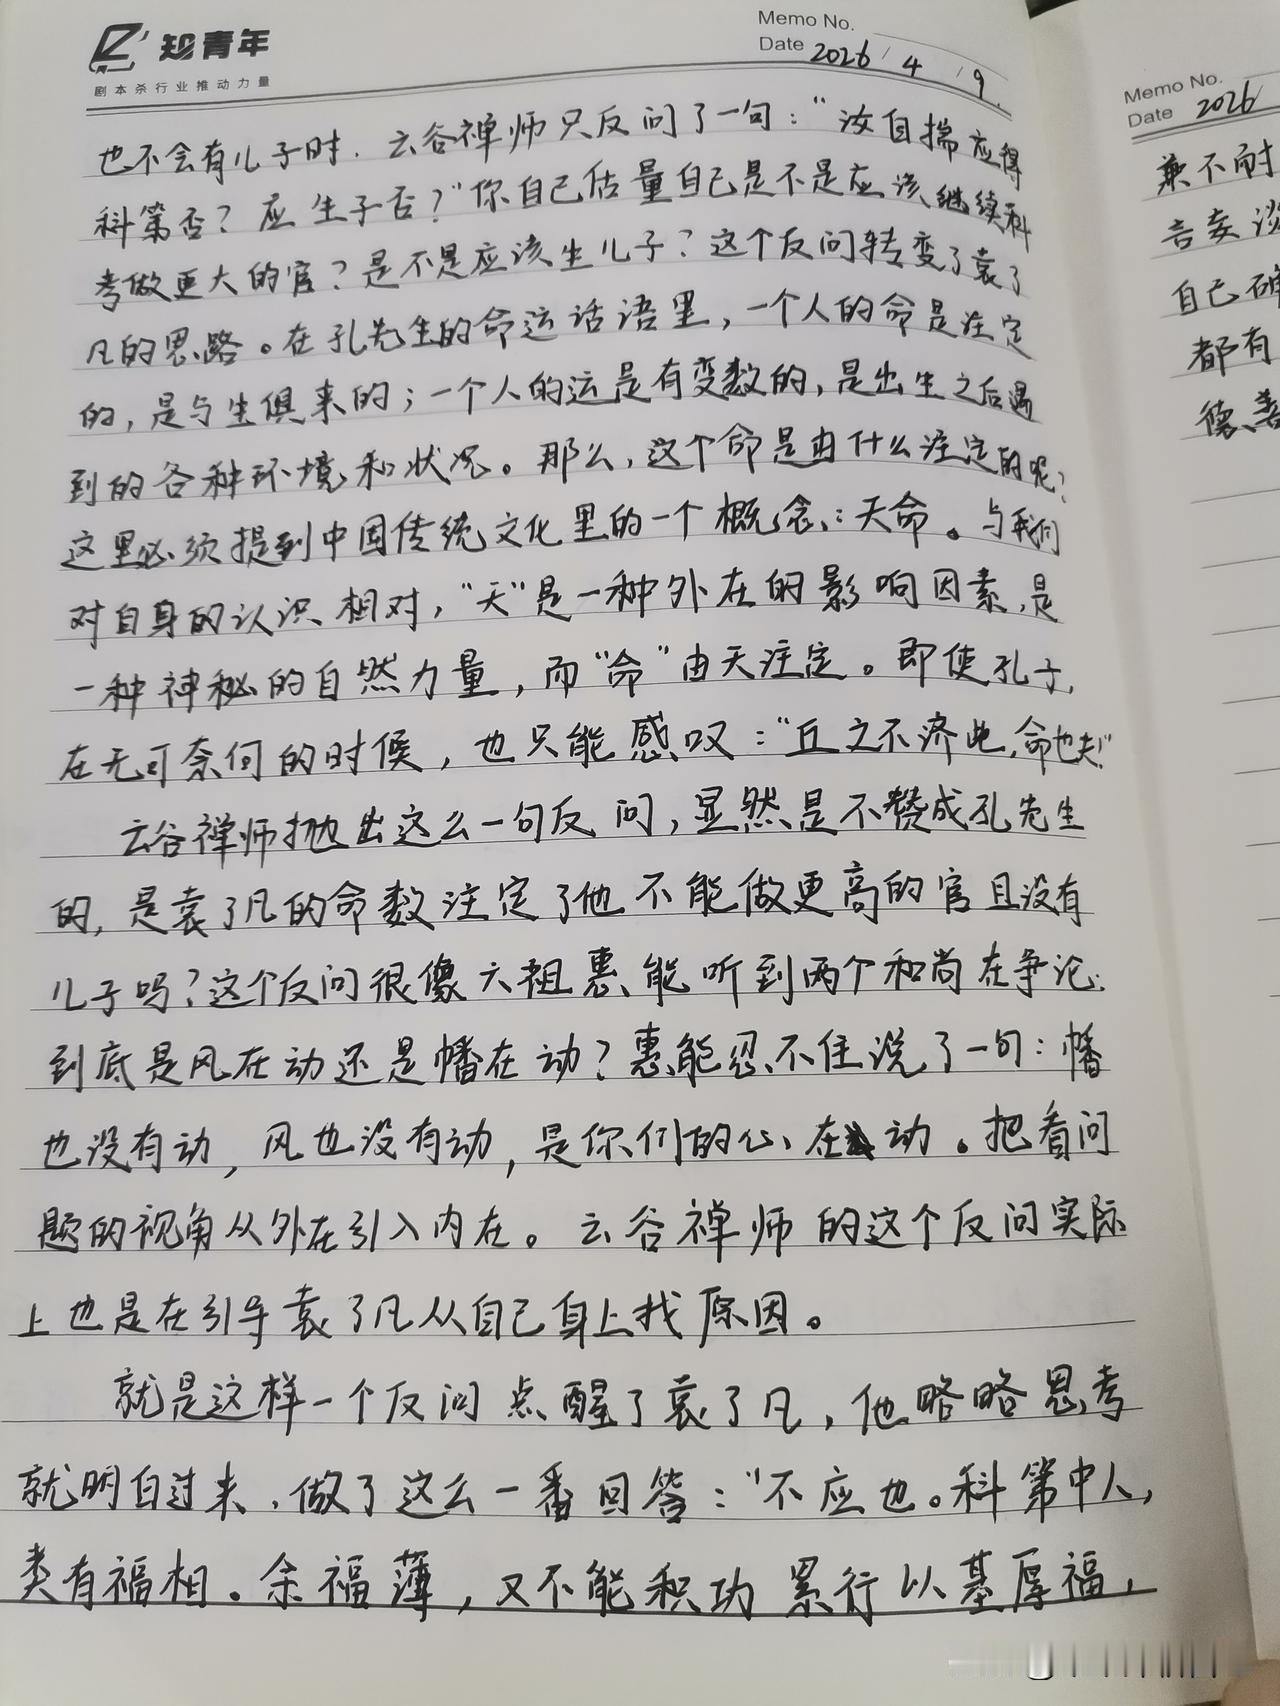 知青年
剧本杀行业推动力量
Memo No.
Date 2026 / 4 / 9
也不会有儿子时，云谷禅师只反问了一句：“汝自揣应得
科第否？应生子否？”你自己估量自己是不是应该继续科
考做更大的官？是不是应该生儿子？这个反问转变了袁了
凡的思路。在孔先生的命运话语里，一个人的命是注定
的，是与生俱来的；一个人的运是有变数的，是出生之后遇
到的各种环境和状况。那么，这个命是由什么注定的呢？
这里必须提到中国传统文化里的一个概念：天命。与我们
对自身的认识相对，“天”是一种外在的影响因素，是
一种神秘的自然力量，而“命”由天注定。即使孔子，
在无可奈何的时候，也只能感叹：“丘之不济此，命也夫！”
云谷禅师抛出这么一句反问，显然是不赞成孔先生
的，是袁了凡的命数注定了他不能做更高的官且没有
儿子吗？这个反问很像六祖惠能听到两个和尚在争论：
到底是风在动还是幡在动？惠能忍不住说了一句：幡
也没有动，风也没有动，是你们的心在动。把看问
题的视角从外在引入内在。云谷禅师的这个反问实际
上也是在引导袁了凡从自己身上找原因。
就是这样一个反问点醒了袁了凡，他略略思考
就明白过来，做了这么一番回答：“不应也。科第中人，
类有福相。余福薄，又不能积功累行以基厚福，
Memo No.
Date 2026
兼不耐
言妄谈
自己确
都有
德、善